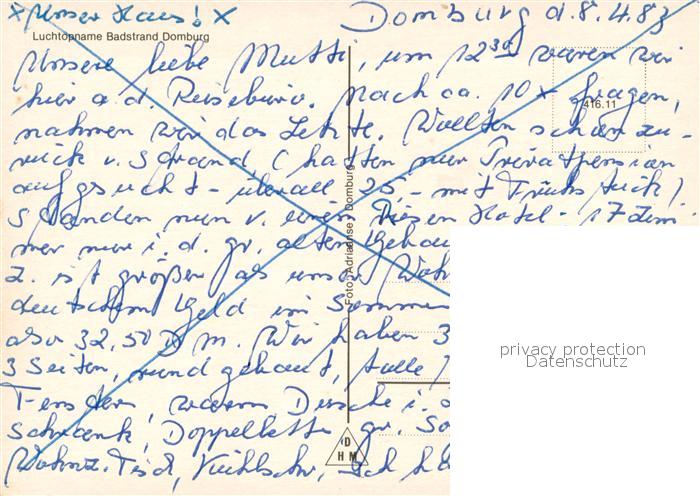 x Unser Haus! x
Domburg d. 8.4.83
Luchtopname Badstrand Domburg
Unsere liebe Mutti, um 12³⁰ waren wir
hier a. d. Reisebüro. Nach ca. 10 x fragen,
416.11
nahmen wir das Letzte. Wollten schon zu-
rück v. Strand, (hatten nur Privatpension
aufgesucht - überall 25,- mit Frühstück)
standen nun v. einem Hotel - 17 Zim
mer nur i. d. gr. alten
Z. ist größer als unser
deutschem Geld im Sommer
also 32,50 Dm. Wir haben 3
3 Seiten, rund gebaut, tolle
Fenster, warm Dusche i.
Schrank, Doppelbett, gr.
Wohnz. Tisch, Kühlschr., Ich
Foto: Adriaanse, Domburg
D
H M
privacy protection
Datenschutz